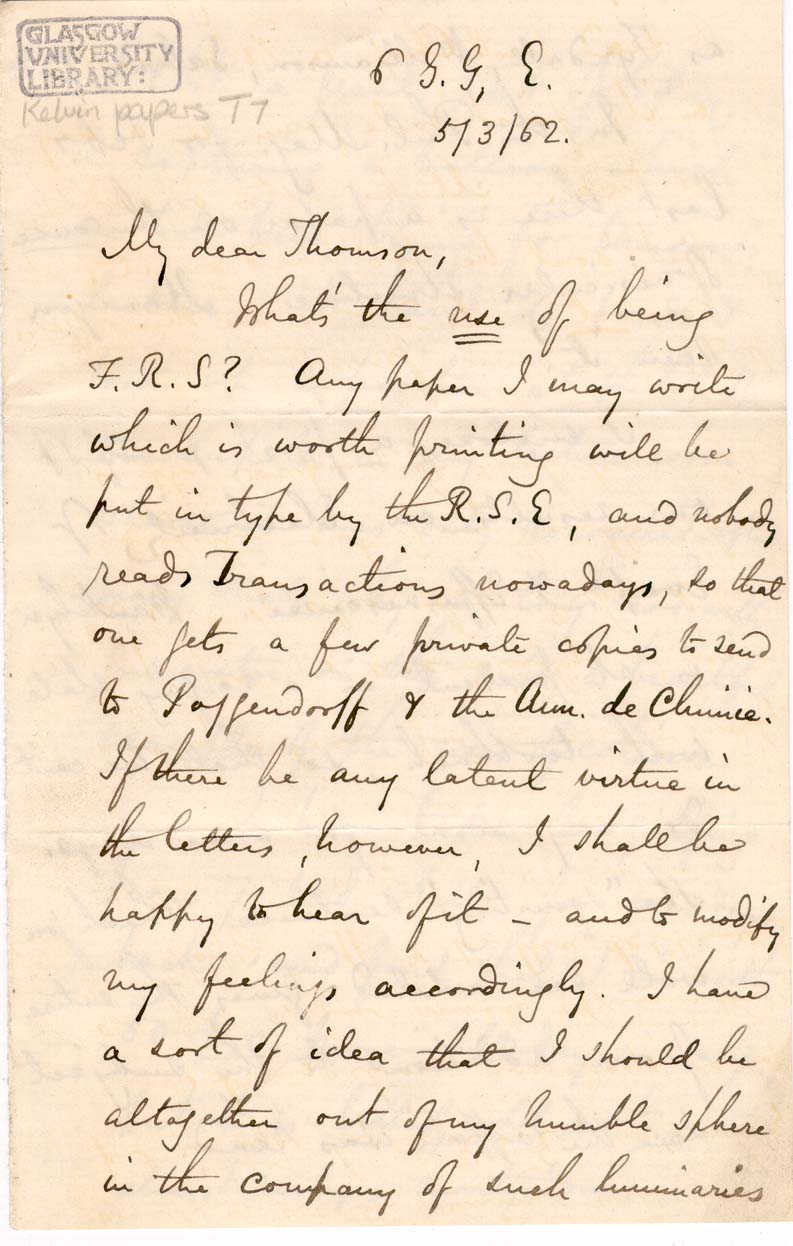 GLASGOW
UNIVERSITY
LIBRARY:
Kelvin papers T7
6 G. G, E.
5/3/62.
My dear Thomson,
What's the use of being
F. R. S? Any paper I may write
which is worth printing will be
put in type by the R. S. E, and nobody
reads Transactions nowadays, so that
one gets a few private copies to send
to Poggendorff & the Ann. de Chimie.
If there be any latent virtue in
the letters, however, I shall be
happy to hear of it – and to modify
my feelings accordingly. I have
a sort of idea that I should be
altogether out of my humble sphere
in the company of such luminaries